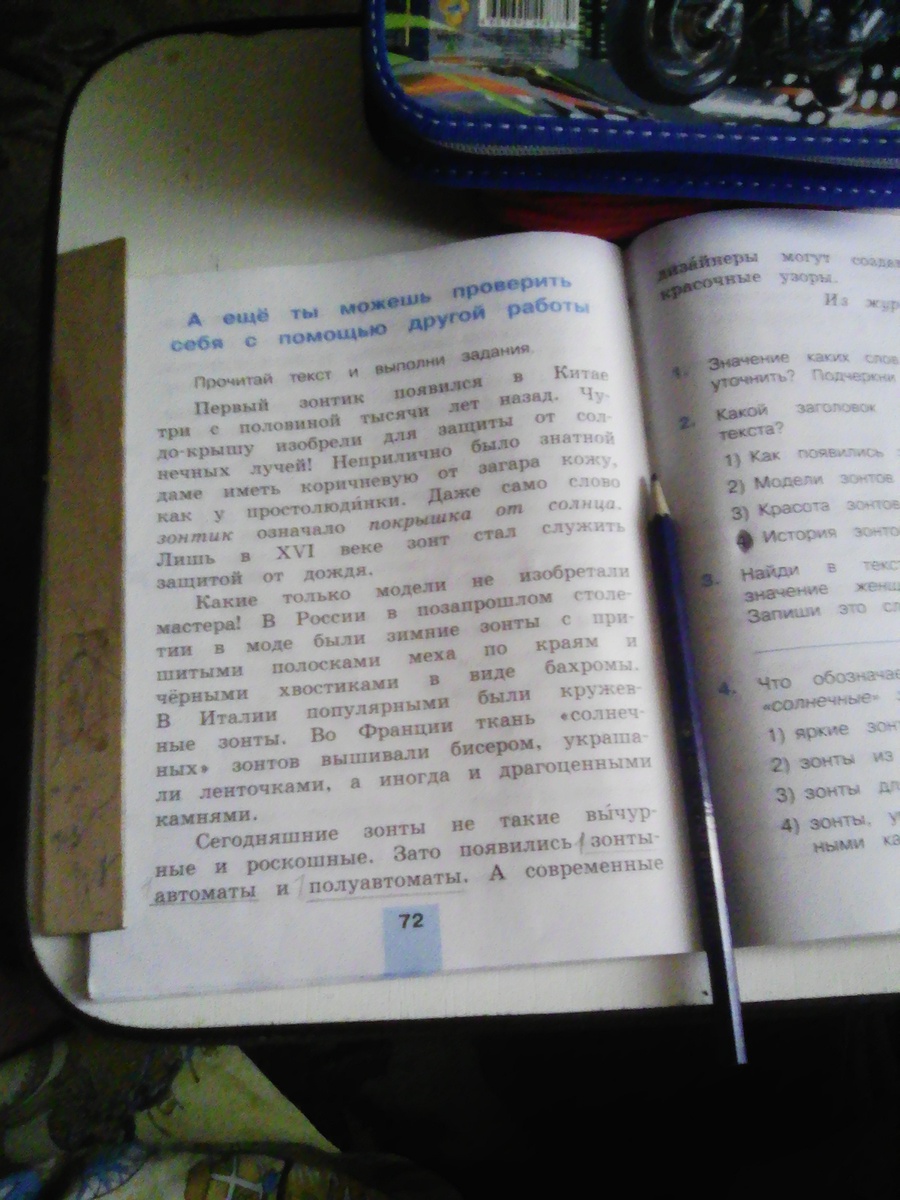 А ещё ты можешь проверить
себя с помощью другой работы
Прочитай текст и выполни задания.
Первый зонтик появился в Китае
три с половиной тысячи лет назад. Чу-
до-крышу изобрели для защиты от сол-
нечных лучей! Неприлично было знатной
даме иметь коричневую от загара кожу,
как у простолюди́нки. Даже само слово
зонтик означало покрышка от солнца.
Лишь в XVI веке зонт стал служить
защитой от дождя.
Какие только модели не изобретали
мастера! В России в позапрошлом столе-
тии в моде были зимние зонты с при-
шитыми полосками меха по краям и
чёрными хвостиками в виде бахромы.
В Италии популярными были кружев-
ные зонты. Во Франции ткань «солнеч-
ных» зонтов вышивали бисером, украша-
ли ленточками, а иногда и драгоценными
камнями.
Сегодняшние зонты не такие вы́чур-
ные и роскошные. Зато появились зонты-
автоматы и полуавтоматы. А современные
72
диза́йнеры могут
красочные узоры.
Из
1. Значение каких
уточнить? Подчеркни
2. Какой заголовок
текста?
1) Как появились
2) Модели зонтов
3) Красота
История
3. Найди в
значение
Запиши это
4. Что
«солнечные»
1) яркие
2) зонты из
3) зонты
4) зонты,